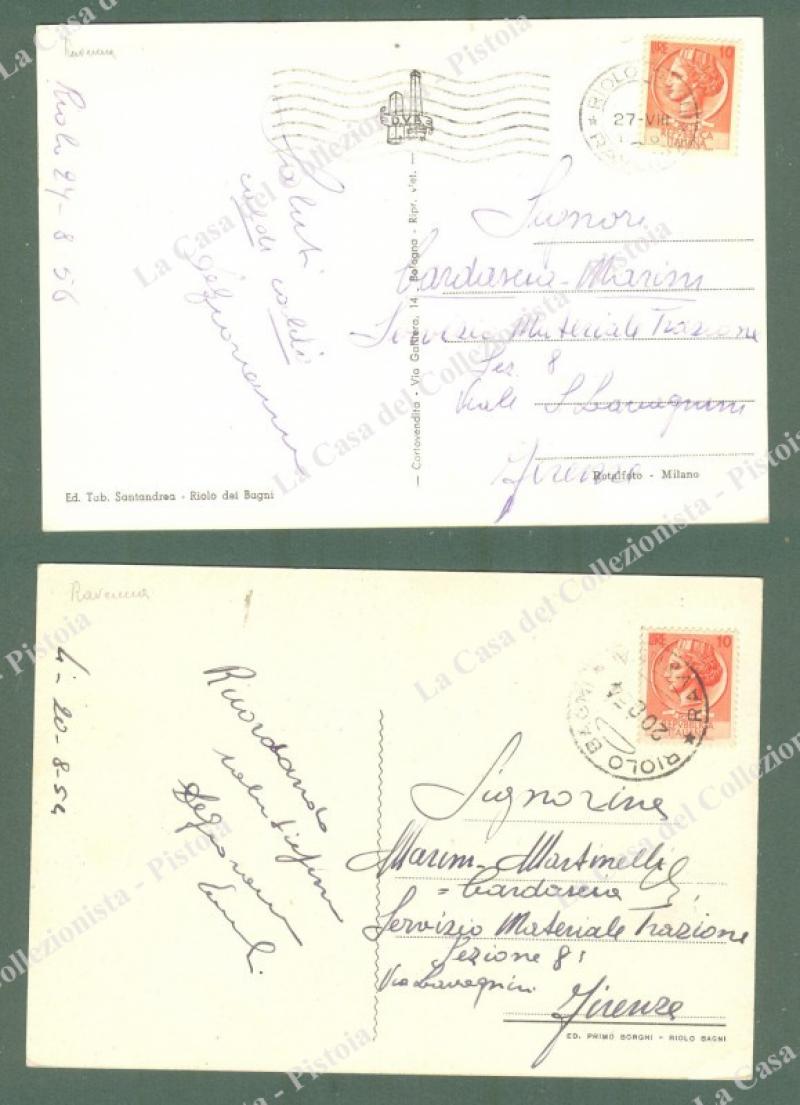 Ravenna
Riolo 24-8-56
LIRE 10
REPUBBLICA
ITALIANA
RIOLO
27-VIII
Saluti
caldi caldi
Signori
Cardascia-Marini
Servizio Materiale Trazione
Sez. 8
Viale S Lavagnini
Firenze
— Cartovendita - Via Galliera, 14. Bologna - Ripr. viet. —
Rotalfoto - Milano
Ed. Tab. Santandrea - Riolo dei Bagni
Ravenna
Lì-20-8-54
LIRE 10
REPUBBLICA
ITALIANA
RIOLO BAGNI
Ricordando
Signorine
Marini-Martinelli
=Cardascia
Servizio Materiale Trazione
Sezione 8ª
Via Lavagnini
Firenze
ED. PRIMO BORGHI - RIOLO BAGNI
La Casa del Collezionista - Pistoia